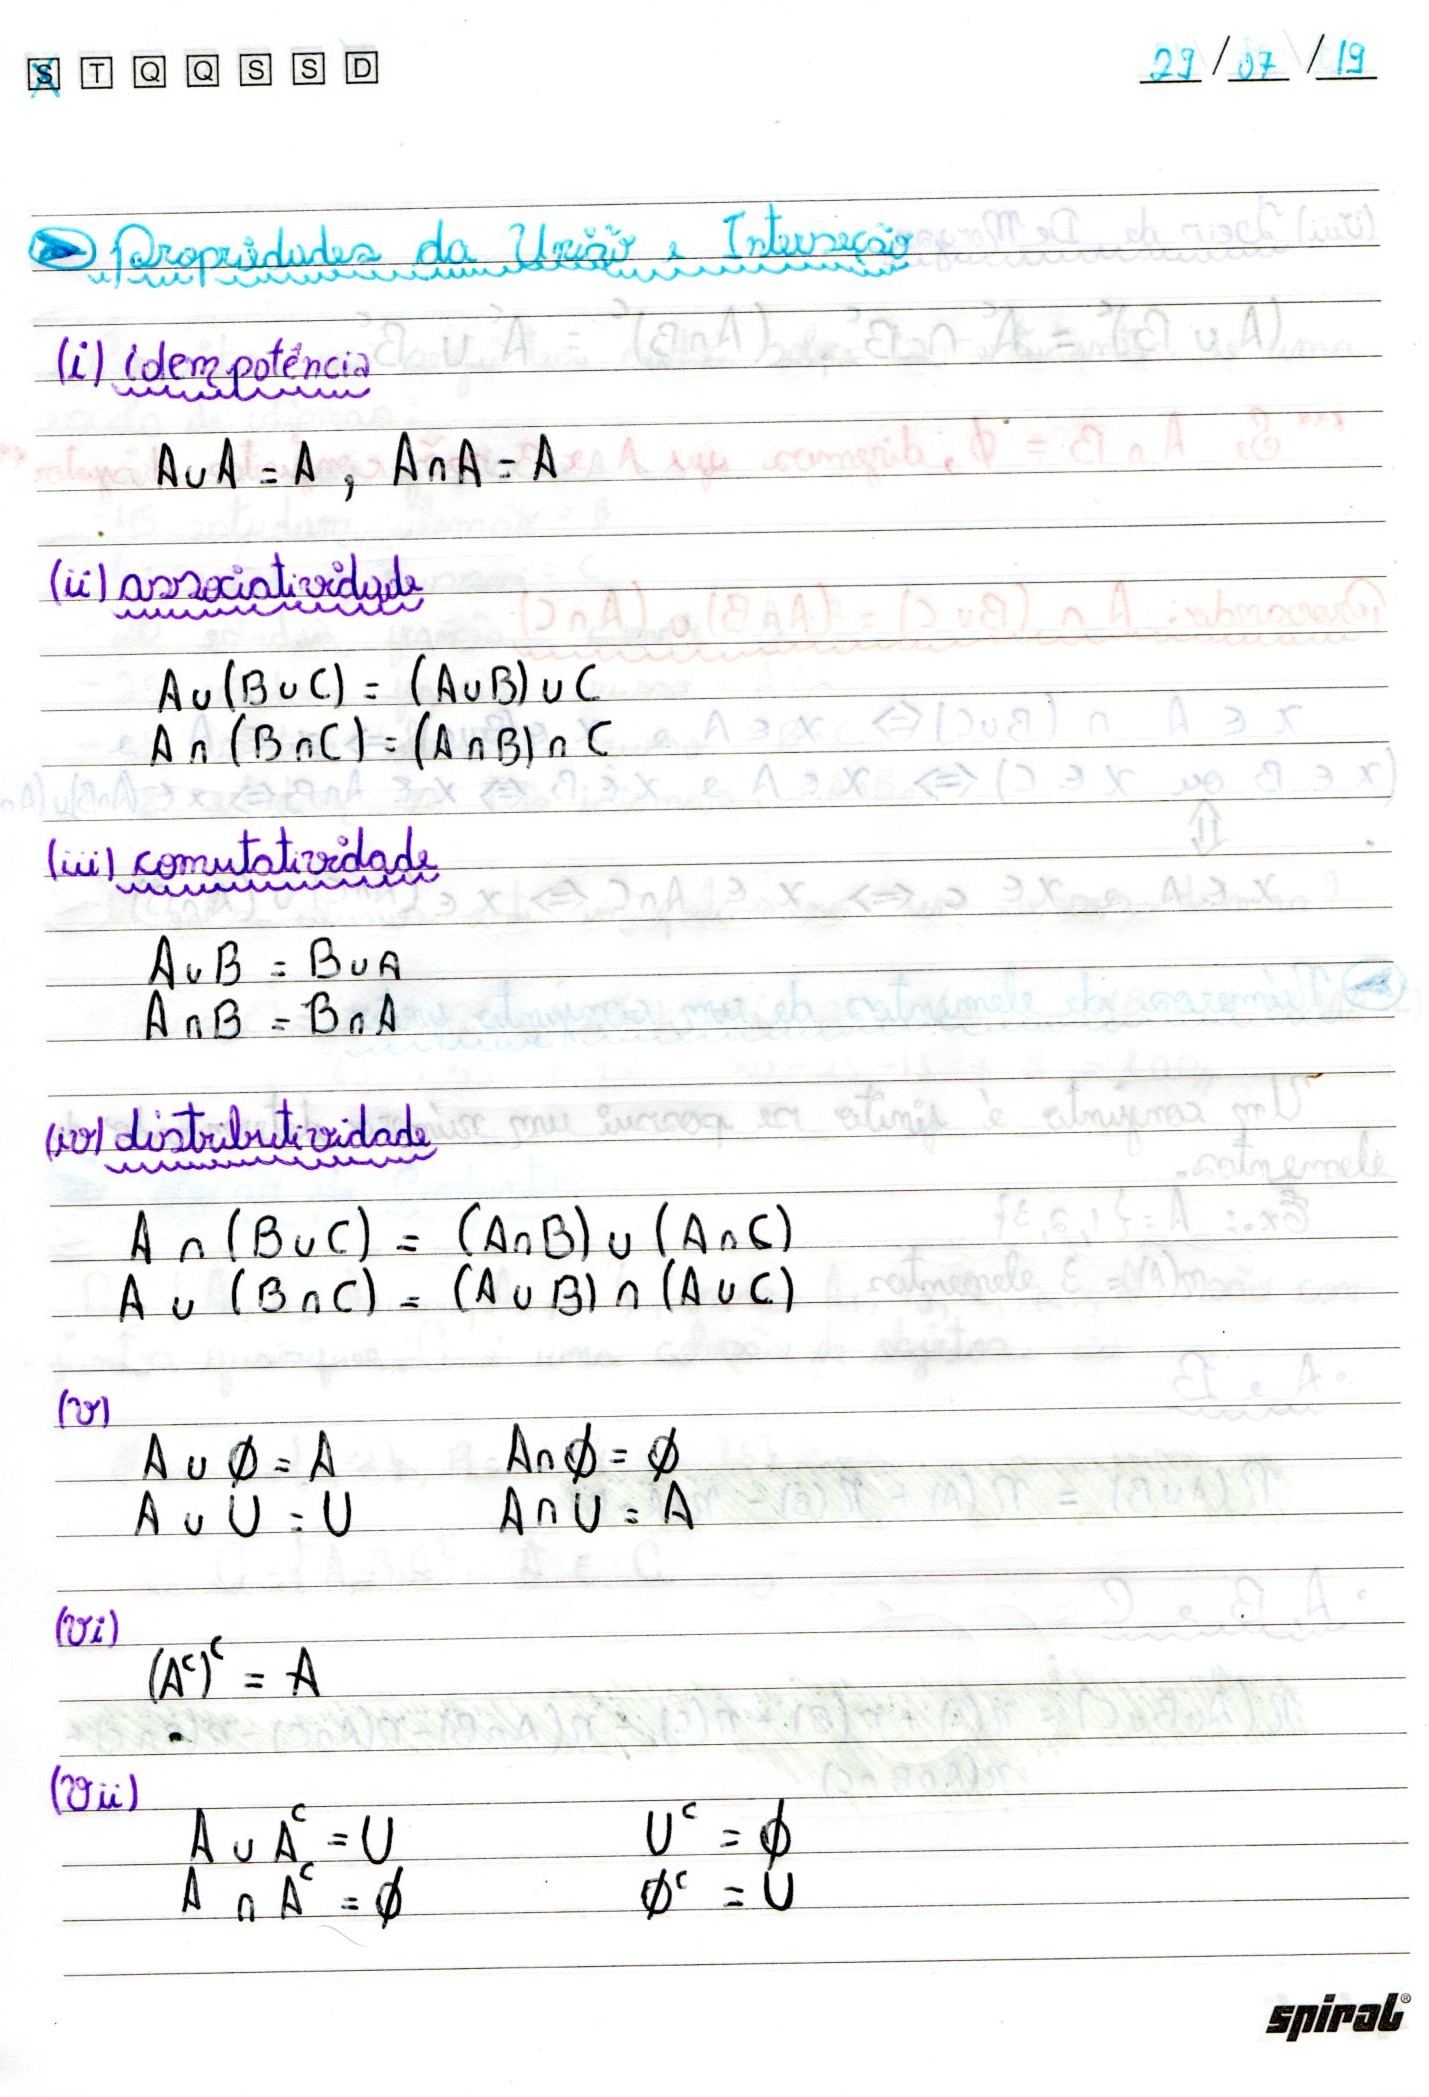 S T Q Q S S D 29/07/19
Propriedades da União e Interseção
(i) idempotência
A∪A = A, A∩A = A
(ii) associatividade
A∪(B∪C) = (A∪B)∪C
A∩(B∩C) = (A∩B)∩C
(iii) comutatividade
A∪B = B∪A
A∩B = B∩A
(iv) distributividade
A∩(B∪C) = (A∩B)∪(A∩C)
A∪(B∩C) = (A∪B)∩(A∪C)
(v)
A∪∅ = A A∩∅ = ∅
A∪U = U A∩U = A
(vi)
(Aᶜ)ᶜ = A
(vii)
A∪Aᶜ = U Uᶜ = ∅
A∩Aᶜ = ∅ ∅ᶜ = U
spiral®